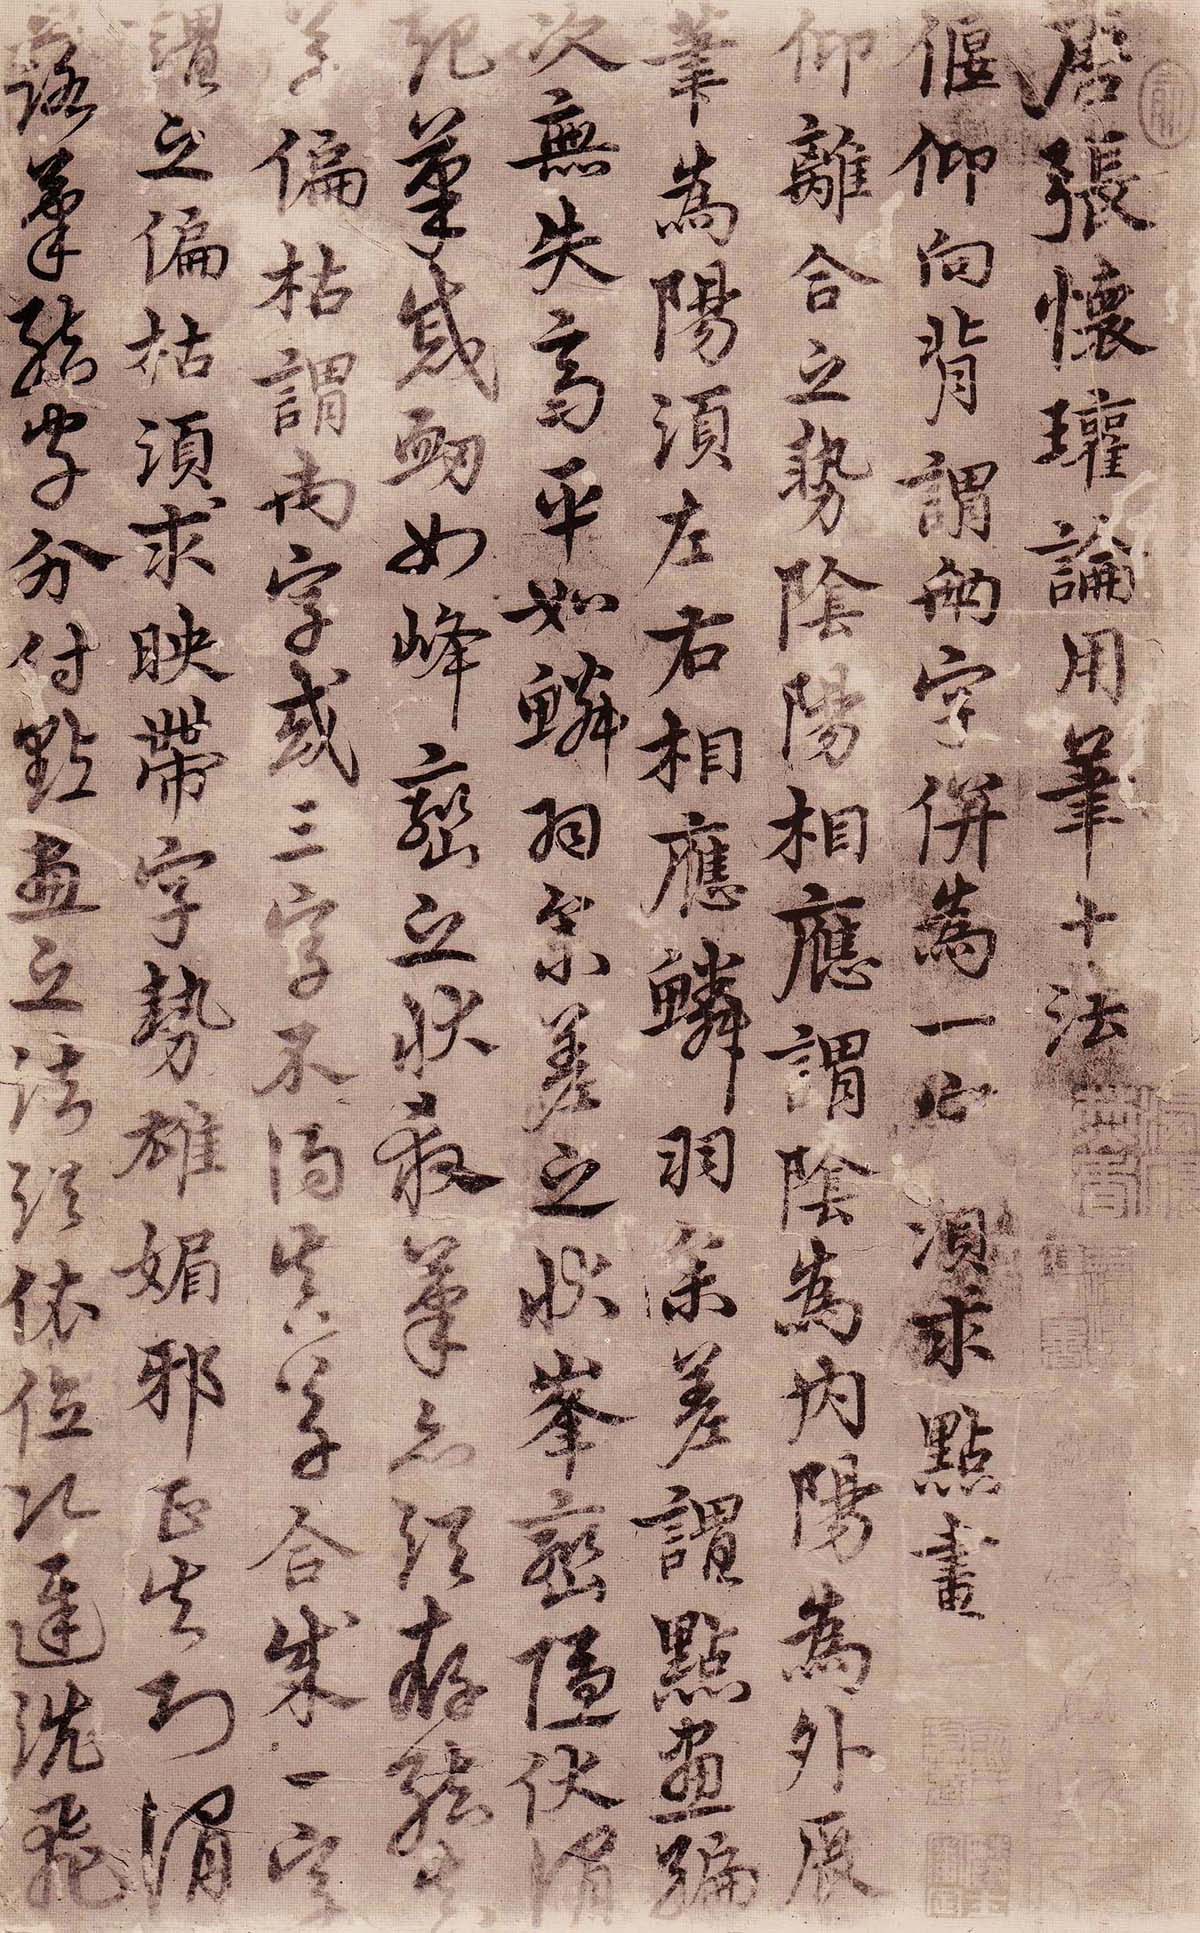 唐張懷瓘論用筆十法
偃仰向背謂兩字併為一字須求點畫
仰離合之勢陰陽相應謂陰為內陽為外展
筆為陽須左右相應鱗羽參差謂點畫編
次無失高平如鱗羽參差之狀峯巒隱伏謂
起筆或䂓如峰巒之狀殺筆亦須存結
草偏枯謂兩字或三字不得真草合成一字
謂之偏枯須求映帶字勢雄媚邪正失所謂
落筆結字分付點畫之法須依位次遲澁飛